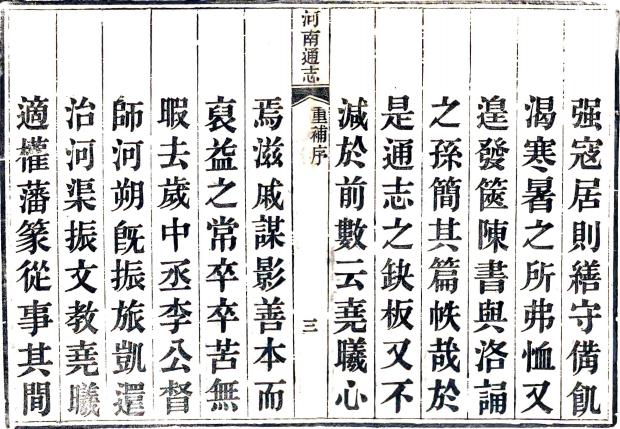 强寇居則繕守備飢
渴寒暑之所弗恤又
遑發篋陳書與洛誦
之孫簡其篇帙哉於
是通志之缺板又不
減於前數云堯曦心
河南通志
重補序
三
焉滋戚謀影善本而
裒益之常卒卒苦無
暇去歲中丞李公督
師河朔旣振旅凱還
治河渠振文教堯曦
適權藩篆從事其間